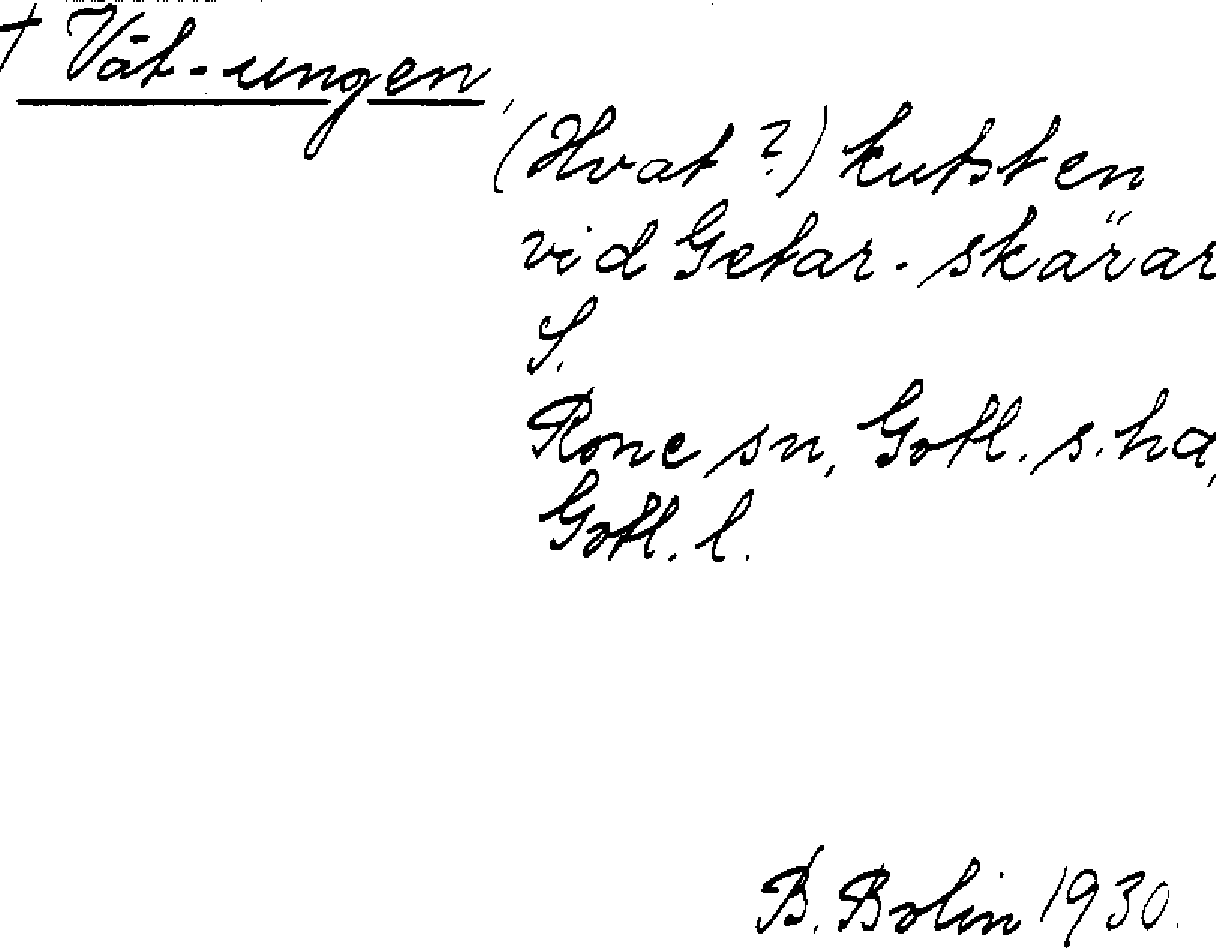 † Vāt-ungen,
(Hvat?) kutsten
vid Getar-skärar
S.
Rone sn, Gotl. s. hd,
Gotl. l.
B. Bolin 1930.